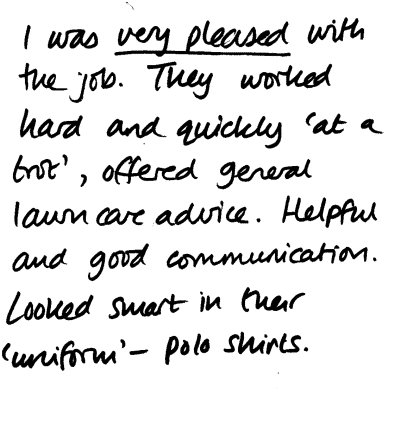 I was very pleased with
the job. They worked
hard and quickly 'at a
trot', offered general
lawn care advice. Helpful
and good communication.
Looked smart in their
'uniform' – polo shirts.